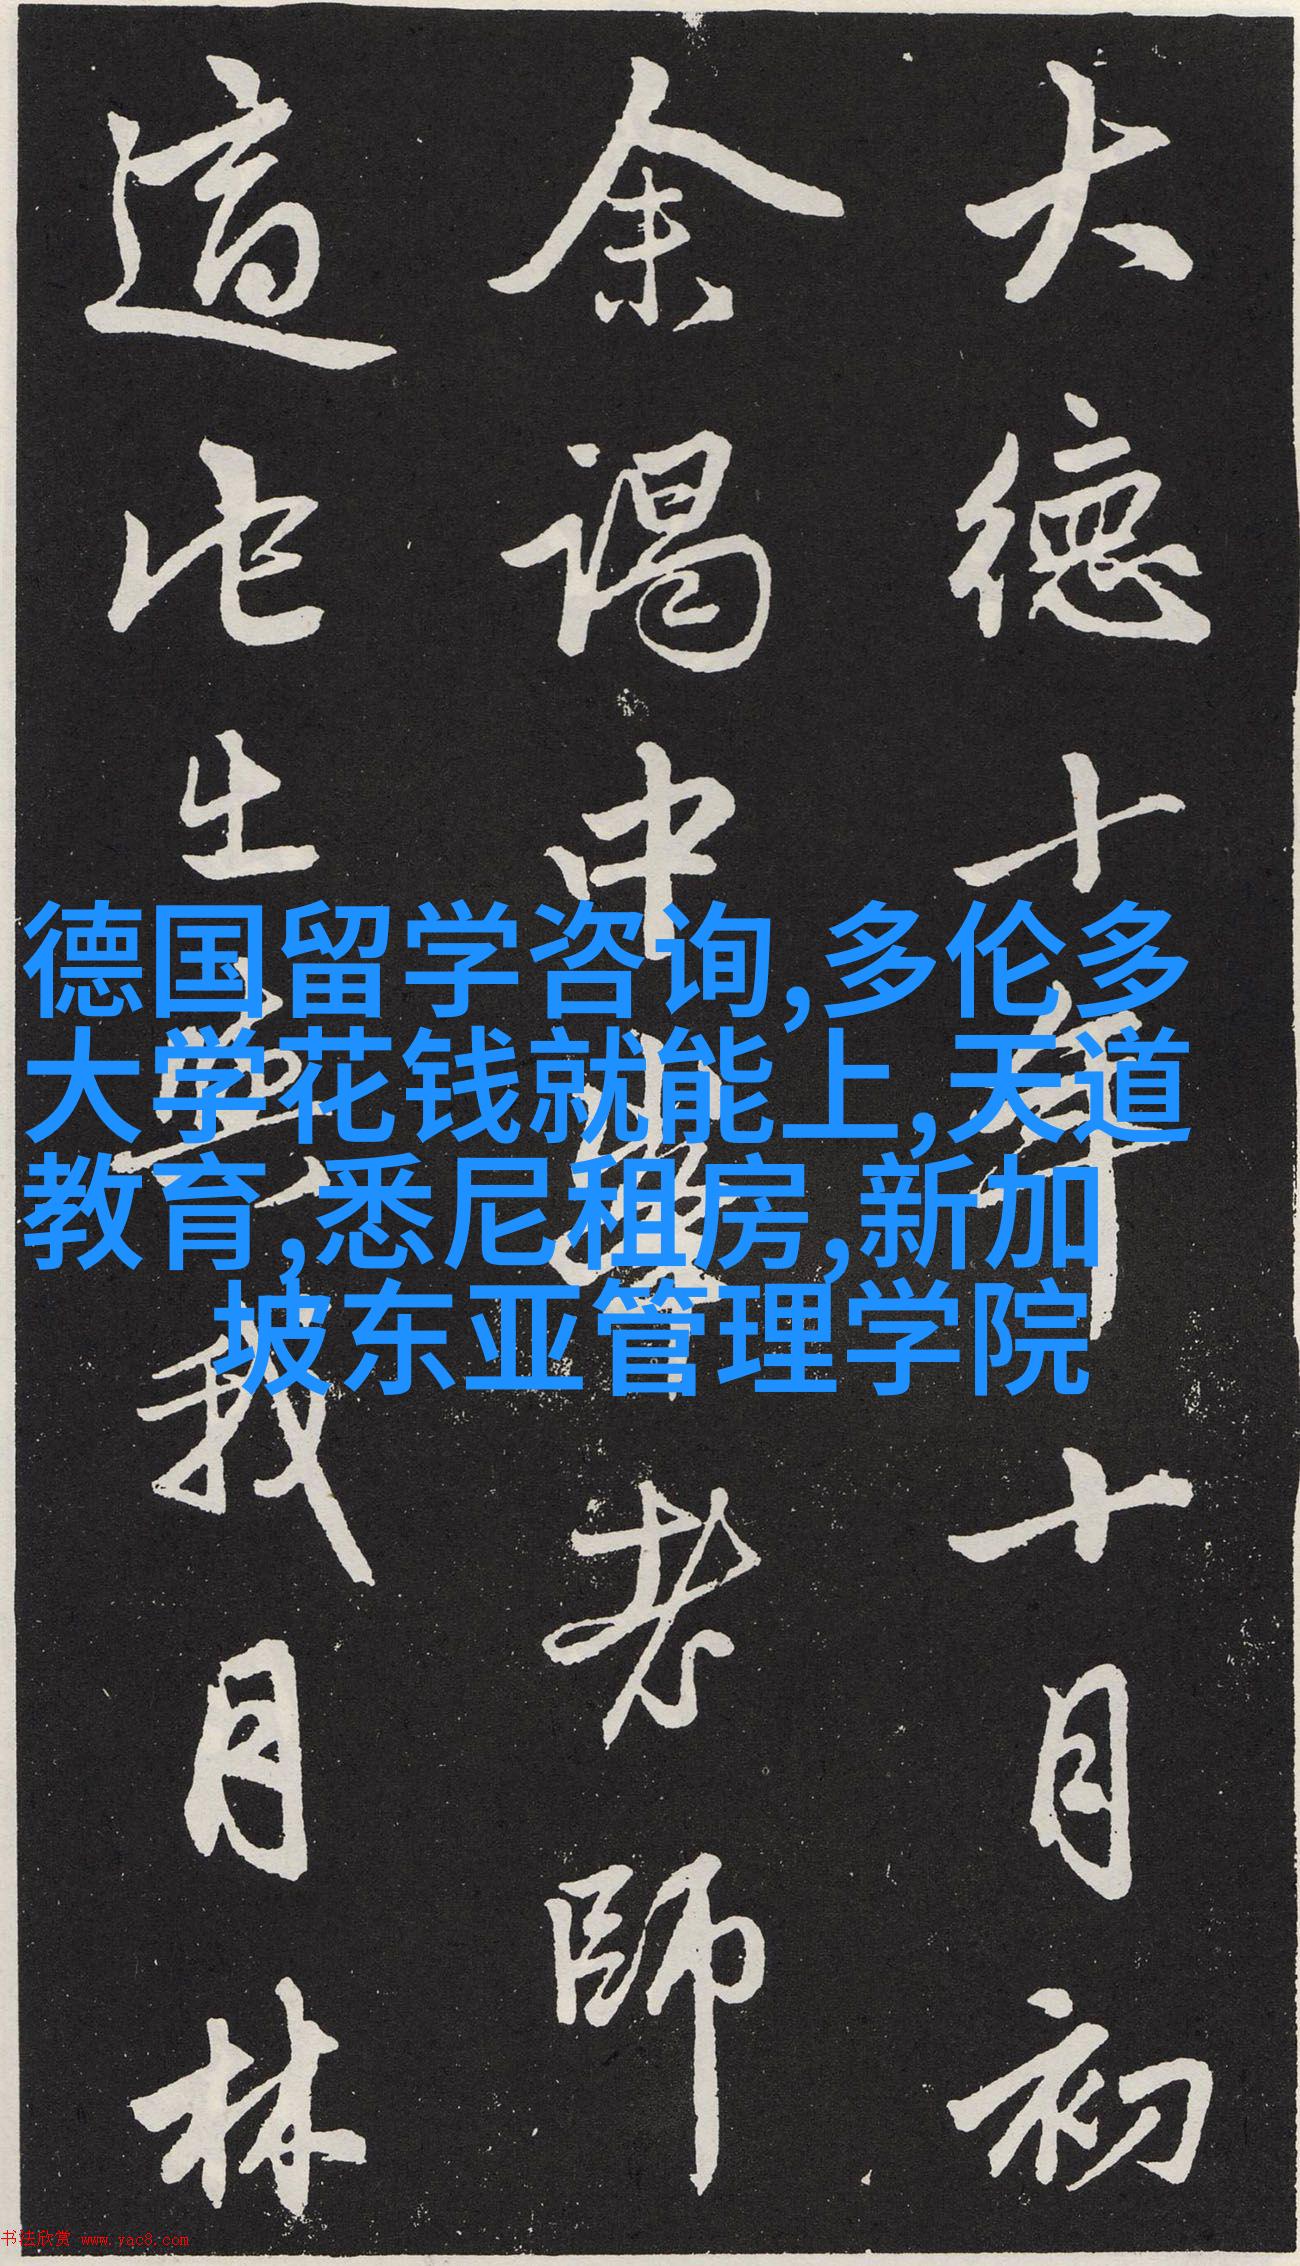 大德十年十月初
余谒中峰老師
适此生與我月林
德国留学咨询,多伦多
大学花钱就能上,天道
教育,悉尼租房,新加
坡东亚管理学院
书法欣赏 www.yac8.com